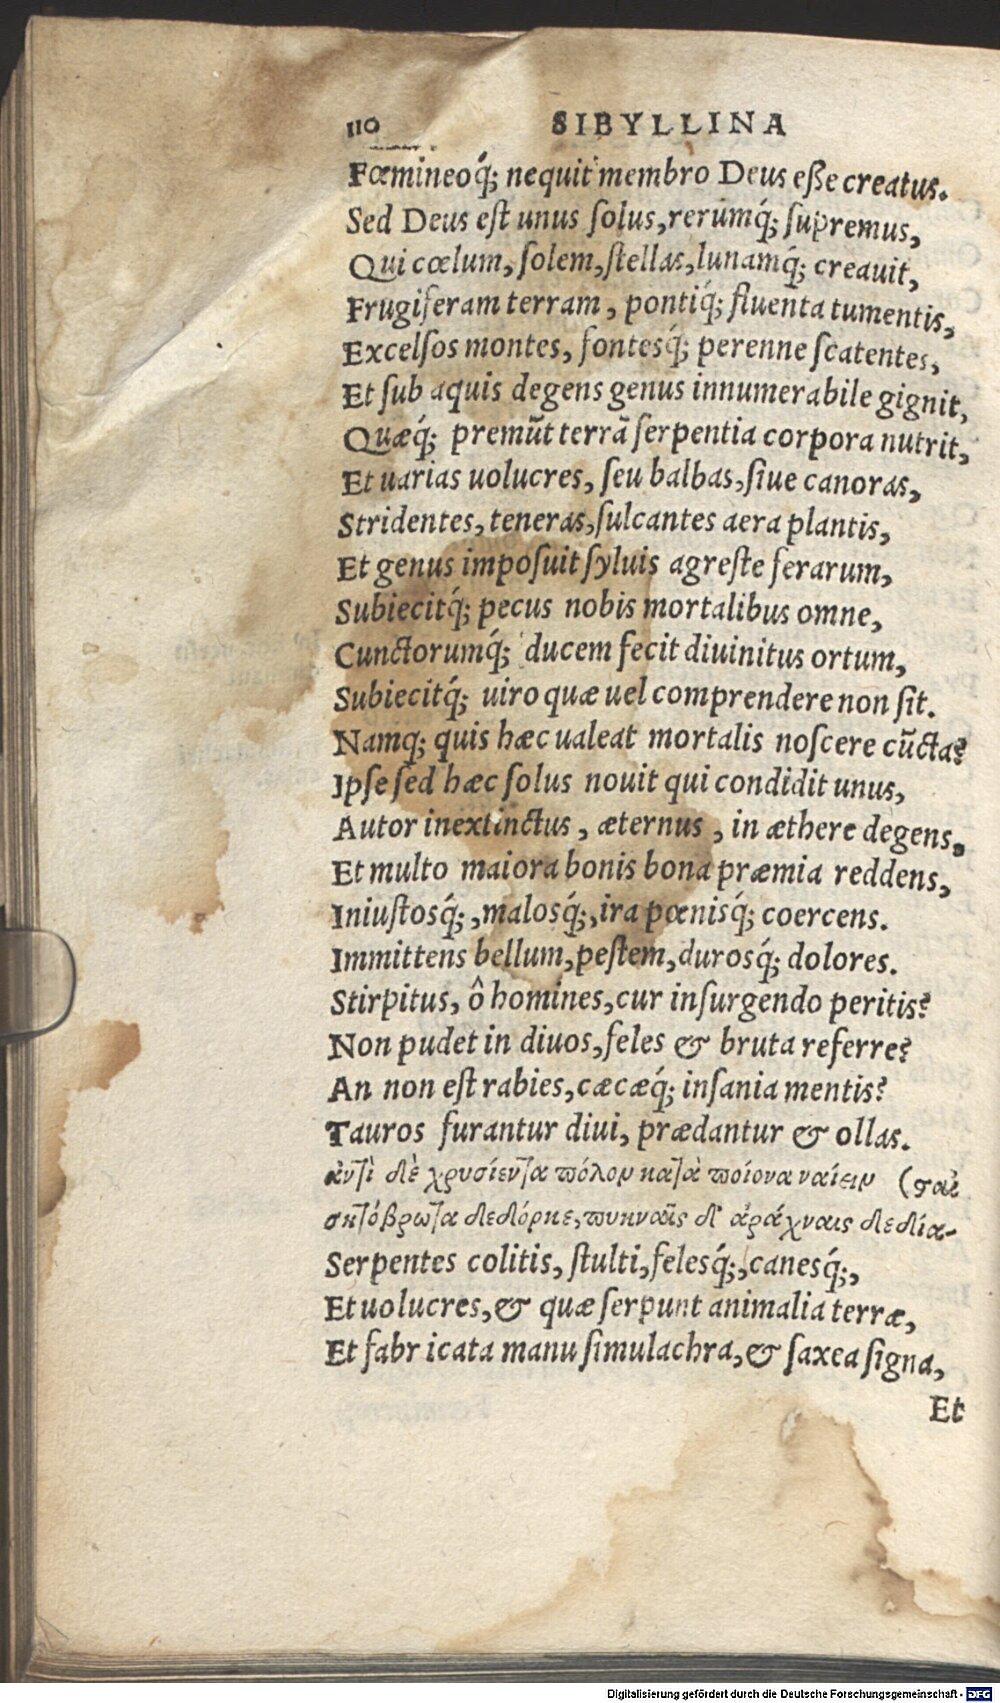 110 SIBYLLINA
Fœmineoq́; nequit membro Deus eße creatus.
Sed Deus eſt unus ſolus, rerumq́; ſupremus,
Qui cœlum, ſolem, ſtellas, lunamq́; creauit,
Frugiferam terram, pontiq́; fluenta tumentis,
Excelſos montes, fontesq́; perenne ſcatentes,
Et ſub aquis degens genus innumerabile gignit,
Quæq́; premūt terrā ſerpentia corpora nutrit,
Et uarias uolucres, ſeu balbas, ſiue canoras,
Stridentes, teneras, ſulcantes aera plantis,
Et genus impoſuit ſyluis agreſte ferarum,
Subiecitq́; pecus nobis mortalibus omne,
Cunctorumq́; ducem fecit diuinitus ortum,
Subiecitq́; uiro quæ uel comprendere non ſit.
Namq; quis hæc ualeat mortalis noſcere cūcta?
Ipſe ſed hæc ſolus nouit qui condidit unus,
Autor inextinctus, æternus, in æthere degens,
Et multo maiora bonis bona præmia reddens,
Iniuſtosq́;, malosq́;, ira pœnisq́; coercens.
Immittens bellum, peſtem, durosq́; dolores.
Stirpitus, ô homines, cur inſurgendo peritis?
Non pudet in diuos, feles & bruta referre?
An non eſt rabies, cæcæq́; inſania mentis?
Tauros furantur diui, prædantur & ollas.
ἀντὶ δὲ χρυσίεντα πόλον κατὰ ποίονα ναίειν (σαι
σητόβρωτα δεδόρκε, πυκναῖς δ' ἀράχναις δεδία-
Serpentes colitis, ſtulti, felesq́;, canesq́;,
Et uolucres, & quæ ſerpunt animalia terræ,
Et fabricata manu ſimulachra, & ſaxea ſigna,
Et
Digitalisierung gefördert durch die Deutsche Forschungsgemeinschaft - DFG